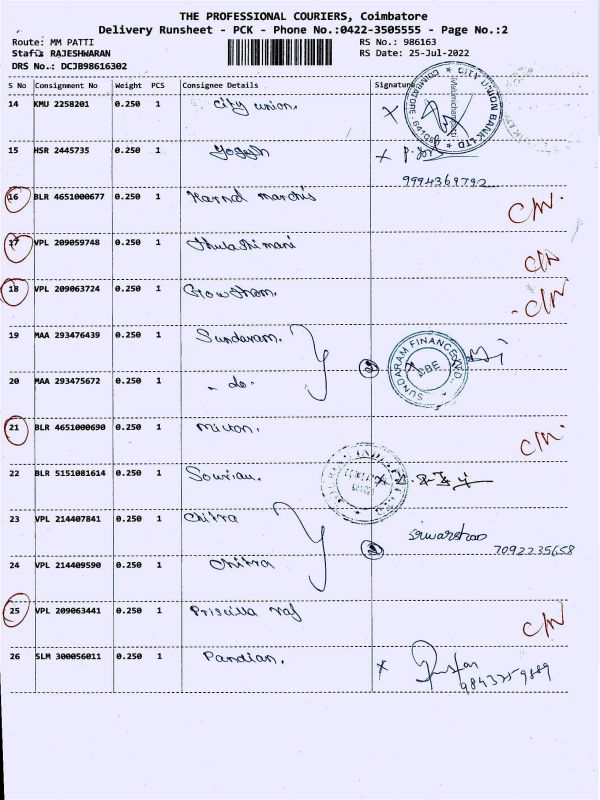 THE PROFESSIONAL COURIERS, Coimbatore
Delivery Runsheet - PCK - Phone No.:0422-3505555 - Page No.:2
Route: MM PATTI RS No.: 986163
Staff: RAJESHWARAN RS Date: 25-Jul-2022
DRS No.: DCJB98616302
S No Consignment No Weight PCS Consignee Details Signature
14 KMU 2258201 0.250 1 City union. X
CITY UNION BANK LTD COIMBATORE - 641
15 HSR 2445735 0.250 1 Yogesh X
9994369792
16 BLR 4651000677 0.250 1 Karnal marchis C/N.
17 VPL 209059748 0.250 1 Thulashimani C/N
18 VPL 209063724 0.250 1 Gowtham. C/N
19 MAA 293476439 0.250 1 Sundaram. 2
SUNDARAM FINANCE LTD. CBE
20 MAA 293475672 0.250 1 - do -
21 BLR 4651000690 0.250 1 C/N.
22 BLR 5151081614 0.250 1 X
23 VPL 214407841 0.250 1 Chitra 2
7092235658
24 VPL 214409590 0.250 1 Chitra
25 VPL 209063441 0.250 1 Priscilla raj C/N
26 SLM 300056011 0.250 1 Pandian. X
9843259889